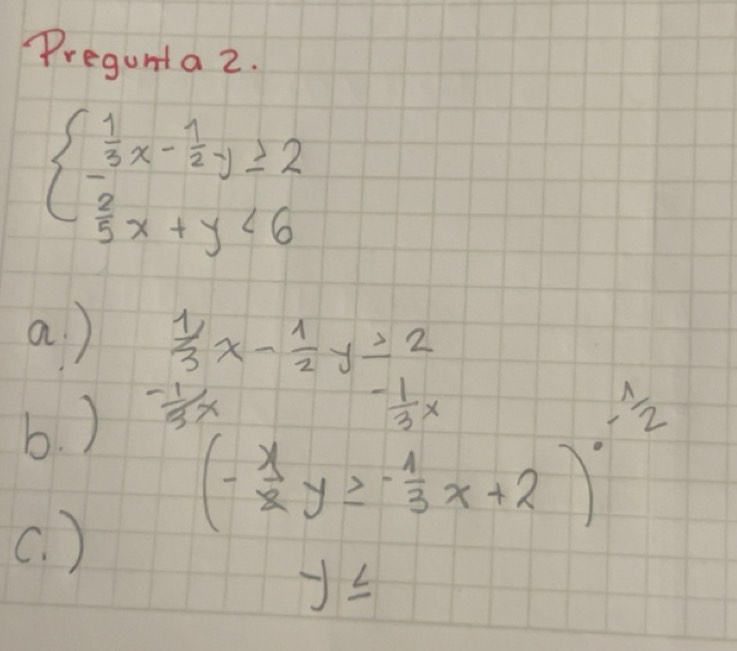 Pregunta 2.
{ 1/3 x - 1/2 y ≥ 2
-2/5 x + y < 6
a.) 1/3 x - 1/2 y ≥ 2
-1/3 x -1/3 x
b.) (-1/2 y ≥ -1/3 x + 2) · -1/2
c.) y ≤